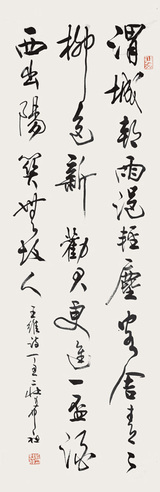 渭城朝雨浥輕塵客舍青々
柳色新勸君更進一盃酒
西出陽關無故人
王維詩丁丑